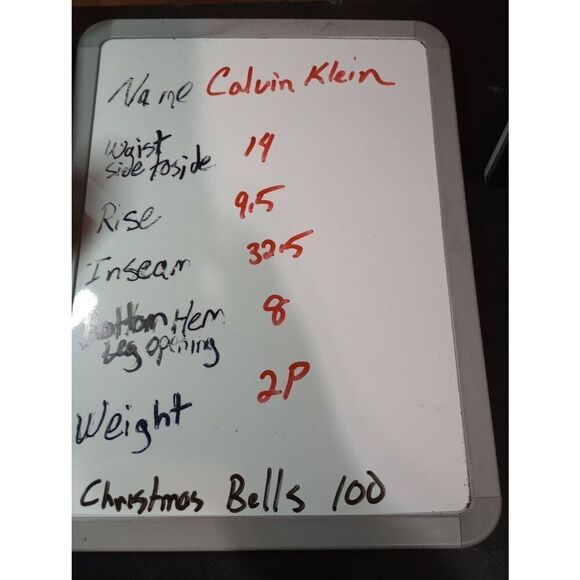 Name Calvin Klein
Waist
side toside 14
Rise 9.5
Inseam 32.5
Bottom Hem 8
Leg opening
Weight 2P
Christmas Bells 100